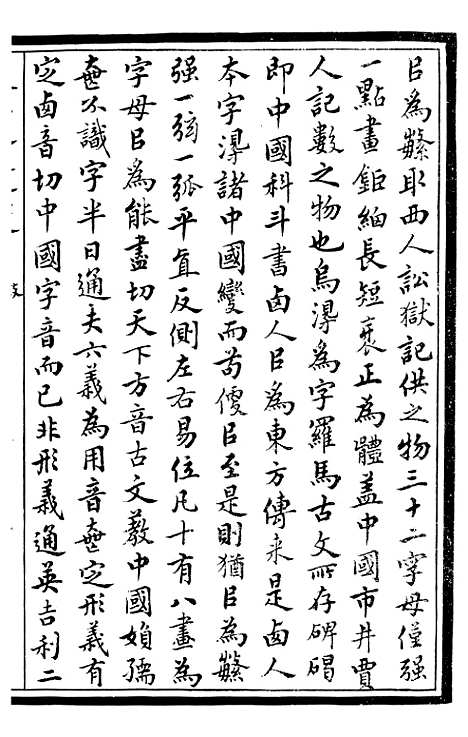 㠯為繁取西人訟獄記供之物三十二字母僅强
一點畫鉅細長短衺正為體盖中國市井賈
人記數之物也烏淂為字羅馬古文所存碑碣
即中國科斗書卤人㠯為東方傳来是卤人
本字淂諸中國變而苟㑯㠯至是則猶㠯為繁
强一弦一弧平直反側左右易位凡十有八畫為
字母㠯為能盡切天下方音古文敎中國媍孺
無不識字半日通夫六義為用音無定形義有
定卤音切中國字音而已非形義通英吉利二